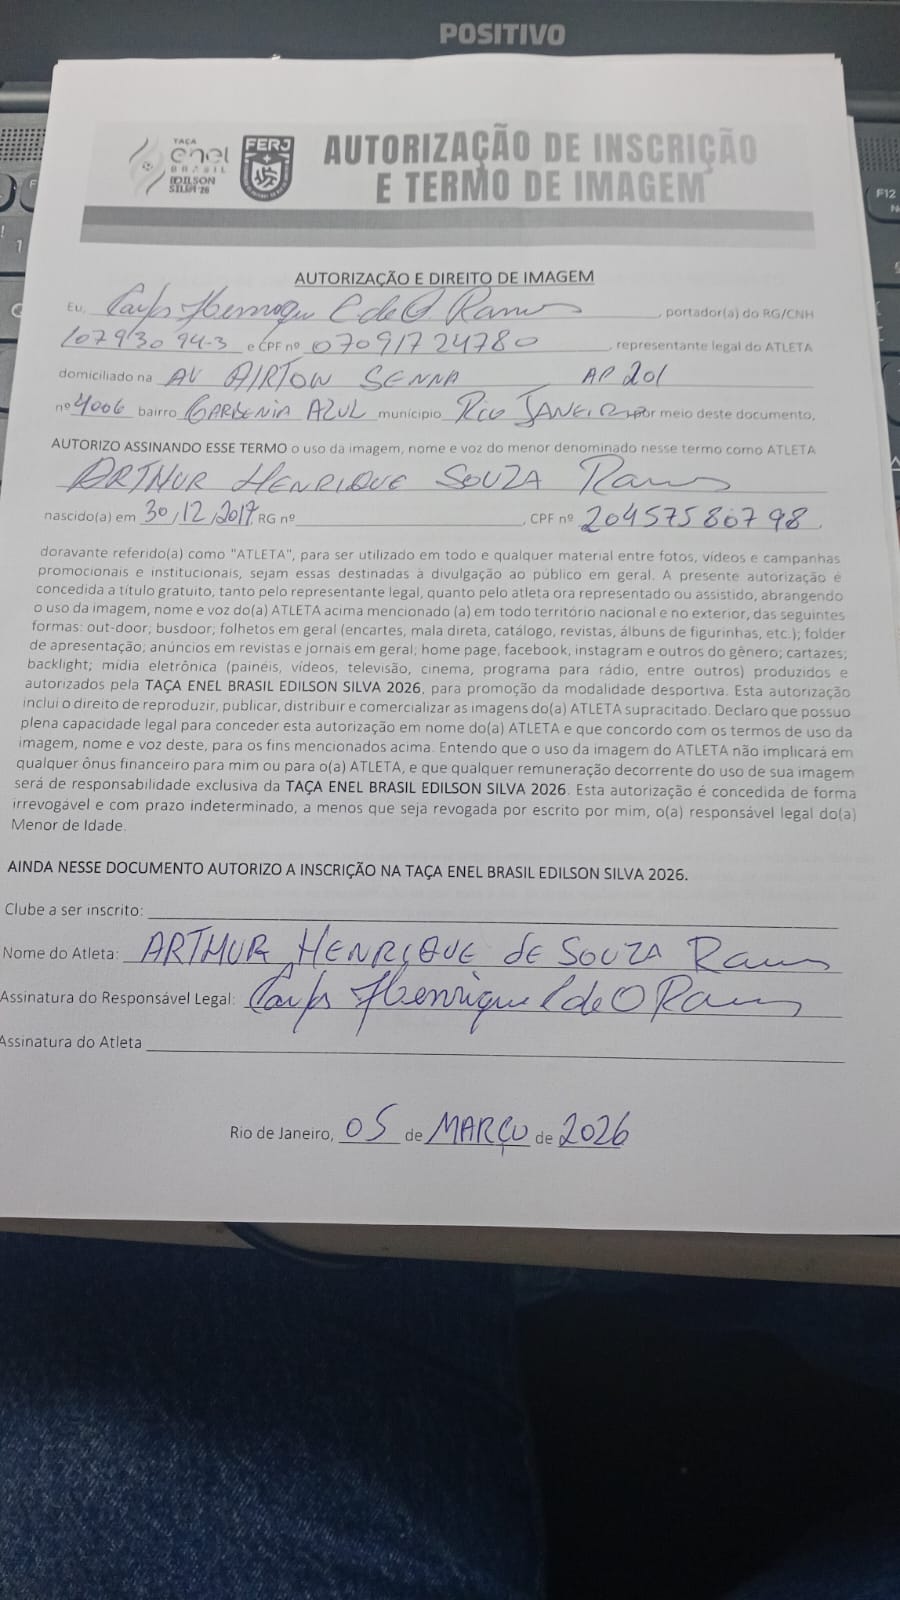 POSITIVO
TAÇA
enel
BRASIL
EDILSON
SILVA'26
FERJ
AUTORIZAÇÃO DE INSCRIÇÃO
E TERMO DE IMAGEM
AUTORIZAÇÃO E DIREITO DE IMAGEM
Eu, Carlos Henrique C de O Ramos, portador(a) do RG/CNH
10793094-3 e CPF nº 07091724780, representante legal do ATLETA
domiciliado na AV AIRTON SENNA AP 201
nº 4006 bairro GARDENIA AZUL município RIO JANEIRO por meio deste documento,
AUTORIZO ASSINANDO ESSE TERMO o uso da imagem, nome e voz do menor denominado nesse termo como ATLETA
ARTHUR HENRIQUE SOUZA Ramos
nascido(a) em 30/12/2017 RG nº , CPF nº 20457580798.
doravante referido(a) como "ATLETA", para ser utilizado em todo e qualquer material entre fotos, vídeos e campanhas
promocionais e institucionais, sejam essas destinadas à divulgação ao público em geral. A presente autorização é
concedida a título gratuito, tanto pelo representante legal, quanto pelo atleta ora representado ou assistido, abrangendo
o uso da imagem, nome e voz do(a) ATLETA acima mencionado (a) em todo território nacional e no exterior, das seguintes
formas: out-door; busdoor; folhetos em geral (encartes, mala direta, catálogo, revistas, álbuns de figurinhas, etc.); folder
de apresentação; anúncios em revistas e jornais em geral; home page, facebook, instagram e outros do gênero; cartazes;
backlight; mídia eletrônica (painéis, vídeos, televisão, cinema, programa para rádio, entre outros) produzidos e
autorizados pela TAÇA ENEL BRASIL EDILSON SILVA 2026, para promoção da modalidade desportiva. Esta autorização
inclui o direito de reproduzir, publicar, distribuir e comercializar as imagens do(a) ATLETA supracitado. Declaro que possuo
plena capacidade legal para conceder esta autorização em nome do(a) ATLETA e que concordo com os termos de uso da
imagem, nome e voz deste, para os fins mencionados acima. Entendo que o uso da imagem do ATLETA não implicará em
qualquer ônus financeiro para mim ou para o(a) ATLETA, e que qualquer remuneração decorrente do uso de sua imagem
será de responsabilidade exclusiva da TAÇA ENEL BRASIL EDILSON SILVA 2026. Esta autorização é concedida de forma
irrevogável e com prazo indeterminado, a menos que seja revogada por escrito por mim, o(a) responsável legal do(a)
Menor de Idade.
AINDA NESSE DOCUMENTO AUTORIZO A INSCRIÇÃO NA TAÇA ENEL BRASIL EDILSON SILVA 2026.
Clube a ser inscrito:
Nome do Atleta: ARTHUR HENRIQUE de SOUZA Ramos
Assinatura do Responsável Legal: Carlos Henrique C de O Ramos
Assinatura do Atleta
Rio de Janeiro, 05 de MARÇO de 2026